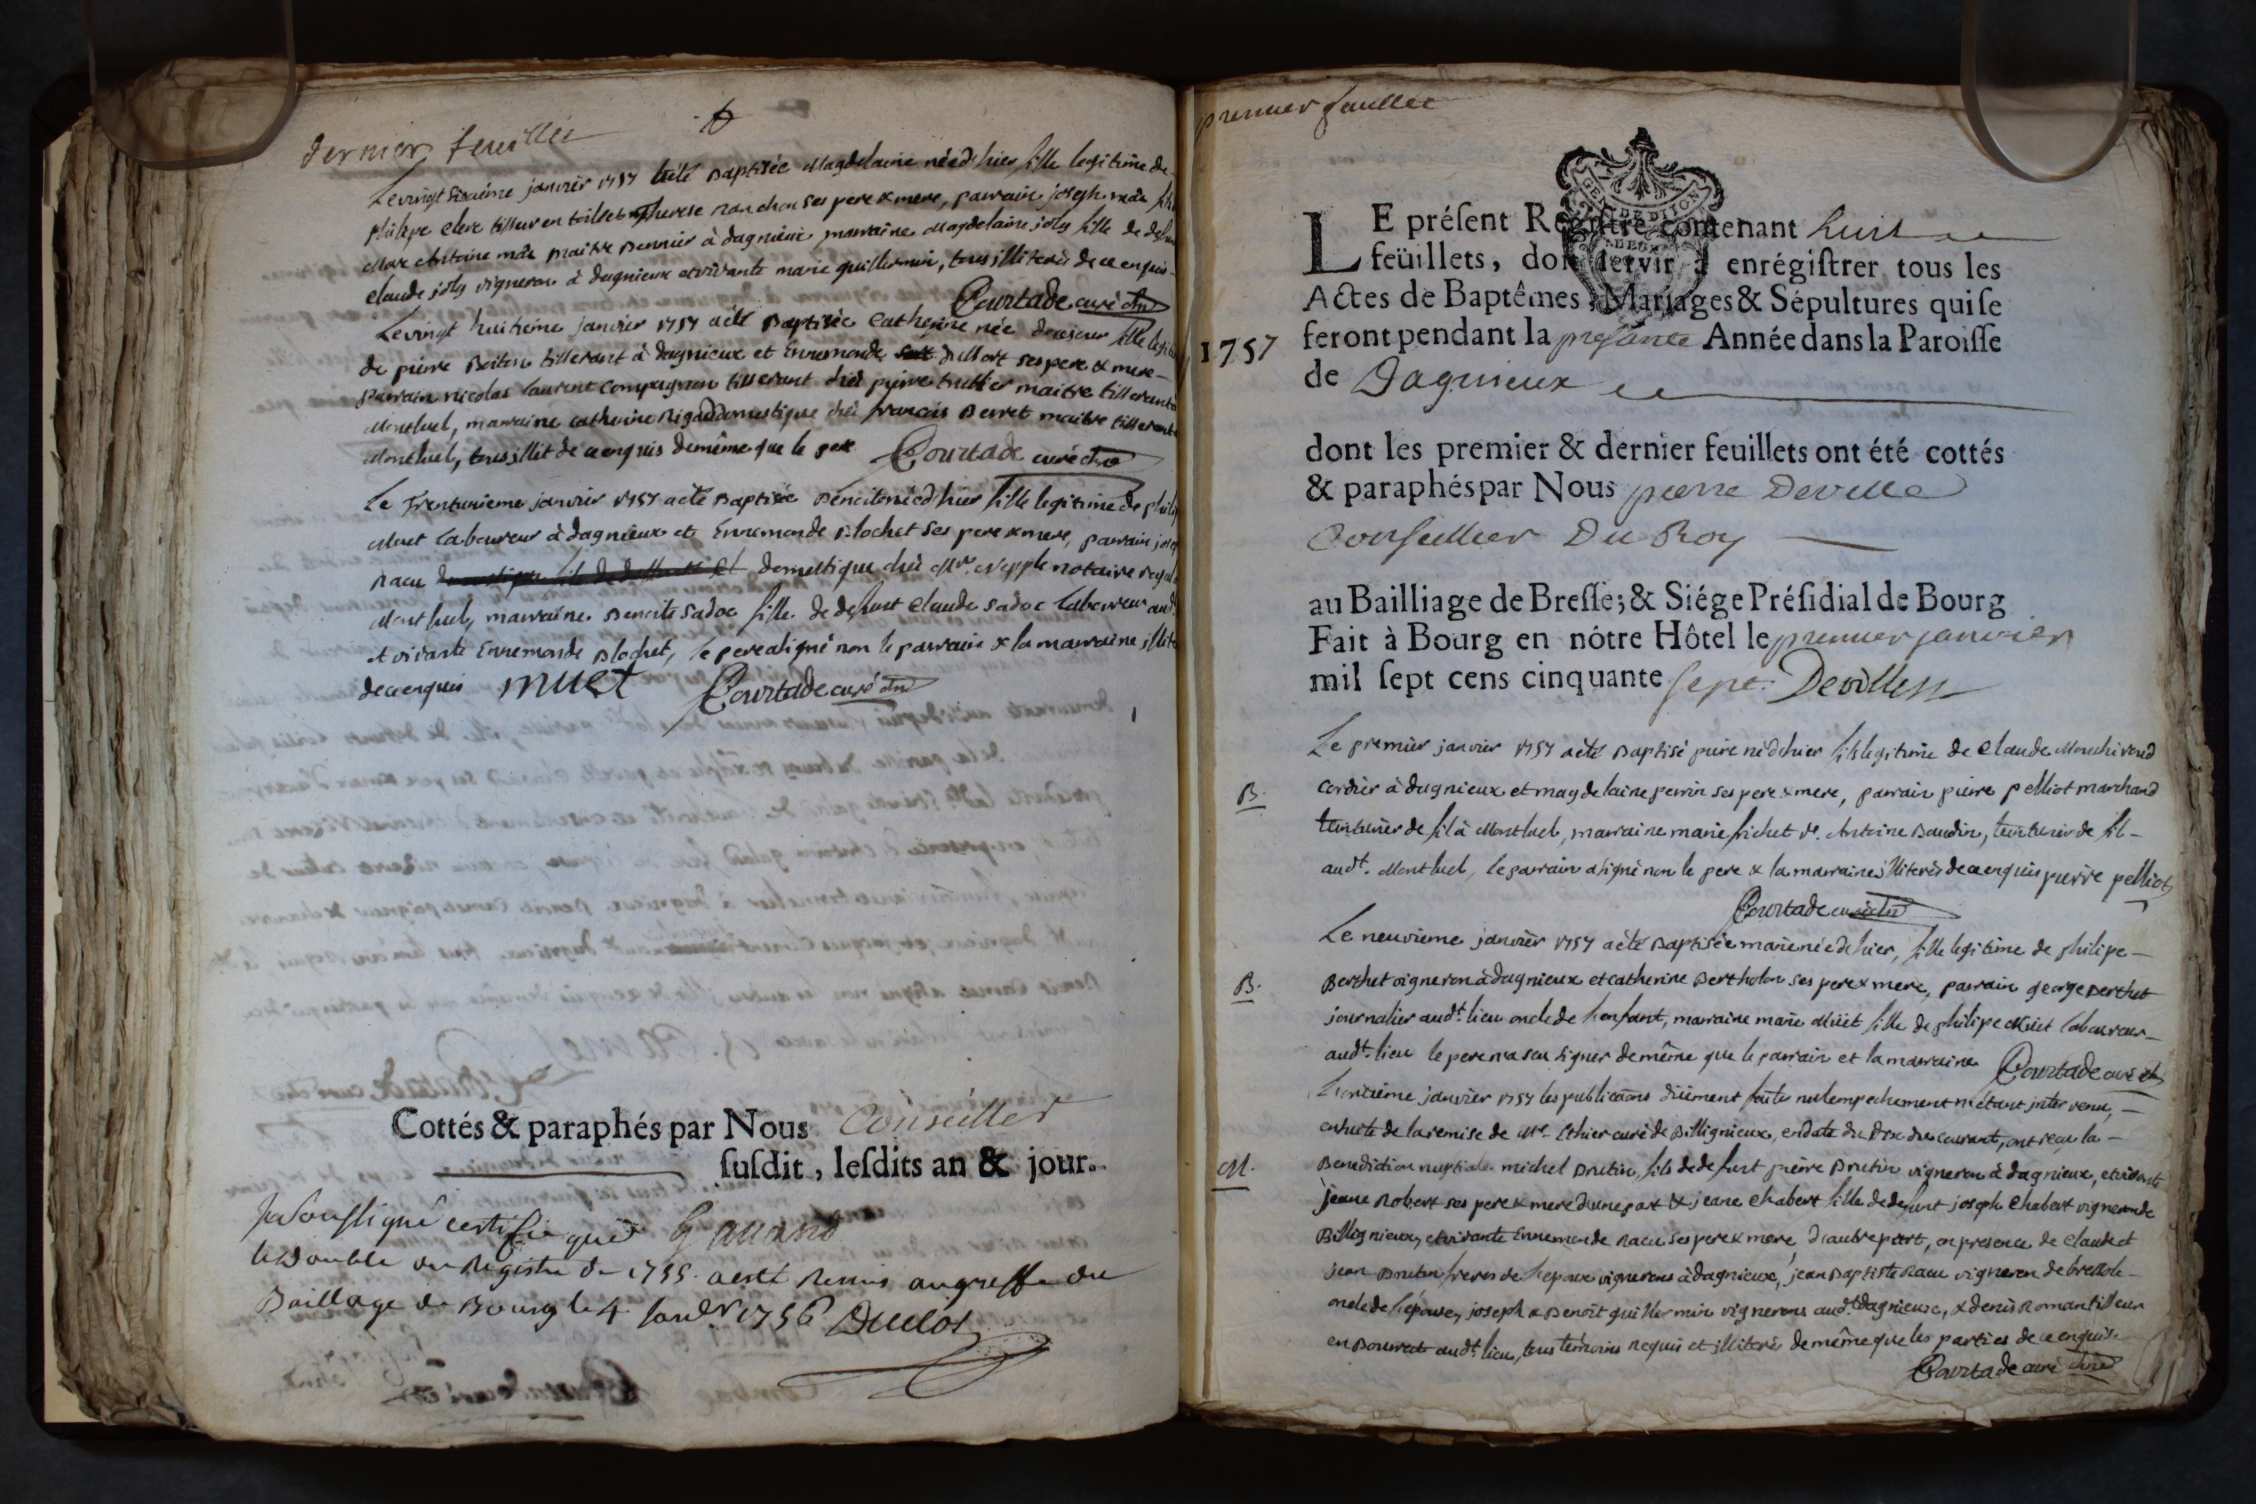 dernier feuillet
Le vingt sixième janvier 1757 a été Baptisée Magdelaine née d'hier fille legitime de
philipe clere tisseur en toiles et Therese ranchon ses pere & mere, parrain joseph mas
Marc Antoine maitre à dagnieux marraine Magdelaine joly fille de
claude joly vigneron à dagnieux et vivante marie guillermin, tous illiterés de ce enquis
Courtade curé
Le vingt huitieme janvier 1757 a été Baptisée Catherine née de ce jour fille
de pierre tisserant à dagnieux et Ennemonde ses pere & mere
Parrain nicolas laurent compagnon tisserant chès pierre maitre tisserant
Montluel, marraine catherine rigad domestique chès francois Berret maitre tisserant
Montluel, tous illit de ce enquis de même que le pere Courtade curé
Le Trenteunieme janvier 1757 a été Baptisée Benoite née d'hier fille legitime de
Muet laboureur à dagnieux et Ennemonde Blochet ses pere & mere, parrain
racu domestique chès Mre. Nepple notaire
Montluel, marraine Benoite sadoc fille de defunt claude sadoc laboureur
et vivante Ennemonde Blochet, le pere a signé non le parrain & la marraine
de ce enquis muet Courtade curé
Cottés & paraphés par Nous Conseiller
susdit, lesdits an & jour.
Je soussigné certifie que
le Double du Registre de 1755. a esté Remis au greffe du
Bailliage de Bourg le 4 1756 Duclos
premier feuillet
LE présent Registre contenant huit
feüillets, doit servir à enrégistrer tous les
Actes de Baptêmes, Mariages & Sépultures qui se
1757 feront pendant la presante Année dans la Paroisse
de Dagnieux
dont les premier & dernier feuillets ont été cottés
& paraphés par Nous pierre Deville
Conseiller Du Roy
au Bailliage de Bresse; & Siége Présidial de Bourg
Fait à Bourg en nôtre Hôtel le premier janvier
mil sept cens cinquante sept. Deville
Le premier janvier 1757 a été Baptisé pierre né d'hier fils legitime de claude
B. cordier à dagnieux et magdelaine perrin ses pere & mere, parrain pierre pelliot marchand
teinturier de fil à Montluel, marraine marie frichet Ve. Antoine Baudin, teinturier de fil
audt. Montluel, le parrain a signé non le pere & la marraine illiterés de ce enquis pierre pelliot
Courtade curé
Le neuvieme janvier 1757 a été Baptisée marie née d'hier, fille legitime de philipe
B. Berthet vigneron à dagnieux et catherine Bertholon ses pere & mere, parrain george Berthet
journalier audt. lieu oncle de l'enfant, marraine marie Müet fille de philipe Müet laboureur
audt. lieu le pere n'a seu signer de même que le parrain et la marraine Courtade curé
L'onzième janvier 1757 les publicaons düement faites nul empechement n'étant intervenu,
ensuite de la remise de Mre. curé de Billignieux, en date du dix du courant, ont reçu la
M. Benediction nuptiale michel Brutin, fils de defunt pierre Brutin vigneron à dagnieux, et vivante
jeane Robert ses pere & mere d'une part & jeane chabert fille de defunt joseph chabert vigneron de
Billignieux, et vivante Ennemonde racu ses pere & mere, d'autre part, en presence de claude et
jean Brutin freres de l'epoux vignerons à dagnieux, jean Baptiste racu vigneron de bressole
oncle de l'épouse, joseph & Benoit guillermin vignerons audt. dagnieux, & denis roman tisseur
en audt. lieu, tous témoins requis et illiterés de même que les parties de ce enquis.
Courtade curé